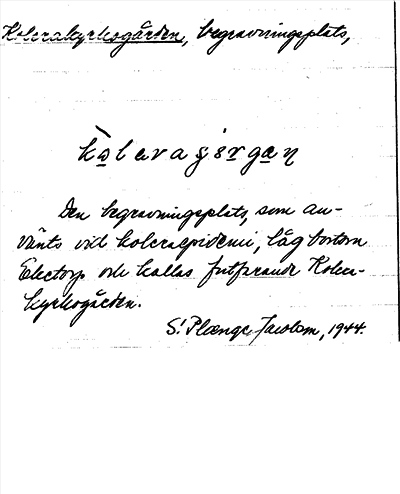 Kolerakyrkogården, begravningsplats,
kolerageorgan
Den begravningsplats, som an-
vänts vid koleraepidemi, låg bortom
Electorp och kallas fortfarande Kolera-
kyrkogården.
S. Plænge Jacobson, 1944.